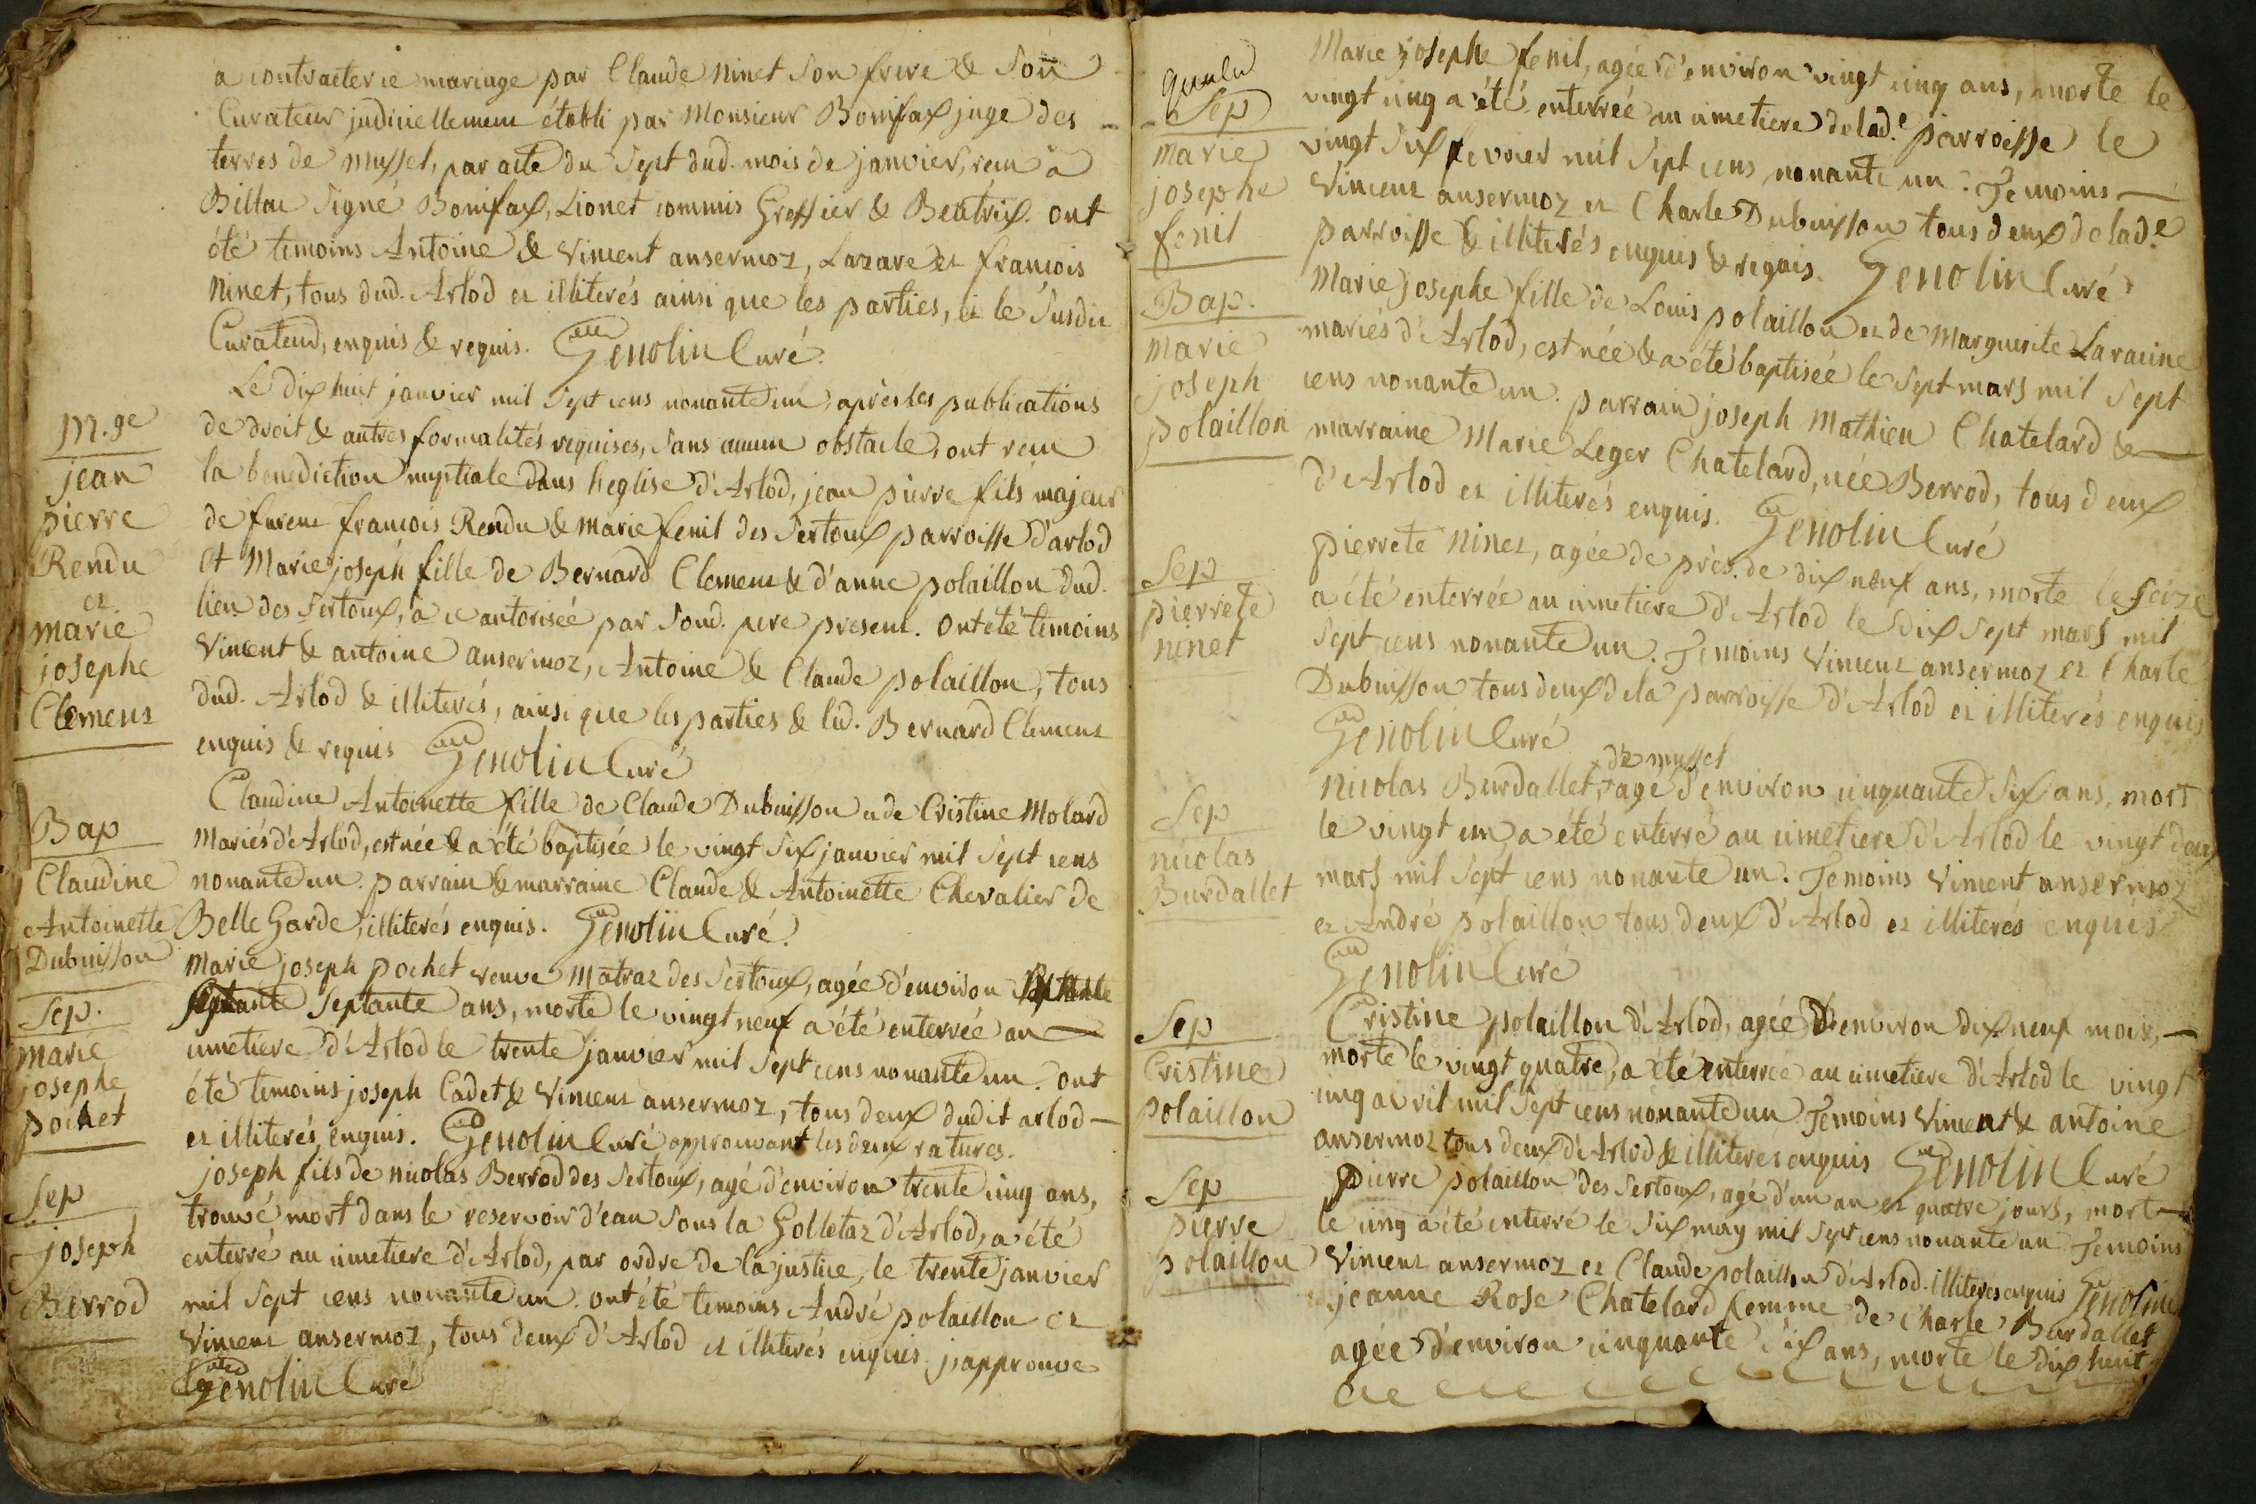 a contracter ce mariage par Claude Ninet son frere & son
Curateur judiciellement établi par Monsieur Bonifax juge des
terres de Mussel, par acte du Sept dud. mois de janvier, recu à
Billiac Signé Bonifax, Lionet commis Greffier & Beatrix. ont
été temoins Antoine & Vincent ansermoz, Lazare et francois
Ninet, tous dud. Arlod et illiterés ainsi que les parties, et le Susdit
Curateur, enquis & requis. Genolin Curé.
M.ge
jean
pierre
Rendu
et
marie
josephe
Clement
Le dix huit janvier mil Sept cens nonante un, après les publications
de droit & autres formalités requises, Sans aucun obstacle, ont recu
la benediction nuptiale dans l'eglise d'Arlod, jean pierre fils majeur
de furent francois Rendu & Marie fenil des Sertoux parroisse d'arlod
et Marie joseph fille de Bernard Clement & d'anne polaillon dud.
lieu des Sertoux, à ce autorisée par Sond. pere present. Ont été temoins
Vincent & antoine ansermoz, Antoine & Claude polaillon, tous
dud. Arlod & illiterés, ainsi que les parties & led. Bernard Clement
enquis & requis Genolin Curé
Bap
Claudine
Antoinette
Dubuisson
Claudine Antoinette fille de Claude Dubuisson et de Cristine Molard
Mariés d'Arlod, est née & a été baptisée le vingt Six janvier mil Sept cens
nonante un. parrain & marraine Claude & Antoinette Chevalier de
Belle Garde, illiterés enquis. Genolin Curé.
Sep.
marie
josephe
pochet
Marie joseph pochet veuve Matraz des Sertoux, agée d'environ
Septante ans, morte le vingt neuf a été enterrée au
cimetiere d'Arlod le trente janvier mil Sept cens nonante un. ont
été temoins joseph Cadet & Vincent ansermoz, tous deux dudit arlod
et illiterés enquis. Genolin Curé approuvant les deux ratures.
Sep
joseph
Berrod
joseph fils de nicolas Berrod des Sertoux, agé d'environ trente cinq ans,
trouvé mort dans le reservoir d'eau sous la Golletaz d'Arlod, a été
enterré au cimetiere d'Arlod, par ordre de la justice, le trente janvier
mil Sept cens nonante un. ont été temoins André polaillon et
Vincent ansermoz, tous deux d'Arlod et illiterés enquis. j'approuve
Genolin Curé
Sep
marie
josephe
fenil
Marie josephe fenil, agée d'environ vingt cinq ans, morte le
vingt cinq a été enterrée au cimetiere de lad.e parroisse le
vingt Six fevrier mil Sept cens nonante un. Temoins
Vincent ansermoz et Charle Dubuisson tous deux de lad.e
parroisse & illiterés enquis & requis. Genolin Curé
Bap.
marie
joseph
polaillon
Marie josephe fille de Louis polaillon et de Marguerite Laracine
mariés d'Arlod, est née & a été baptisée le Sept mars mil Sept
cens nonante un. parrain joseph Mathieu Chatelard &
marraine Marie Leger Chatelard, née Berrod, tous deux
d'Arlod et illiterés enquis. Genolin Curé
Sep
pierrete
ninet
pierrete Ninet, agée de près de dix neuf ans, morte le Seize
a été enterrée au cimetiere d'Arlod le dix Sept mars mil
Sept cens nonante un. Temoins Vincent ansermoz et Charle
Dubuisson tous deux de la parroisse d'Arlod et illiterés enquis
Genolin Curé
Sep
nicolas
Burdallet
de mussel
Nicolas Burdallet, agé d'environ cinquante Six ans, mort
le vingt un a été enterré au cimetiere d'Arlod le vingt deux
mars mil Sept cens nonante un. Temoins Vincent ansermoz
et André polaillon tous deux d'Arlod et illiterés enquis
Genolin Curé
Sep
Cristine
polaillon
Cristine polaillon d'Arlod, agée d'environ dix neuf mois,
morte le vingt quatre, a été enterrée au cimetiere d'Arlod le vingt
cinq avril mil Sept cens nonante un Temoins Vincent & antoine
ansermoz tous deux d'Arlod & illiteres enquis Genolin Curé
Sep
pierre
polaillon
pierre polaillon des Sertoux, agé d'un an et quatre jours, mort
le cinq a été enterré le Six may mil Sept cens nonante un Temoins
Vincent ansermoz et Claude polaillon d'Arlod. illiteres enquis Genolin
jeanne Rose Chatelard femme de Charle Burdallet
agée d'environ cinquante Six ans, morte le dix huit